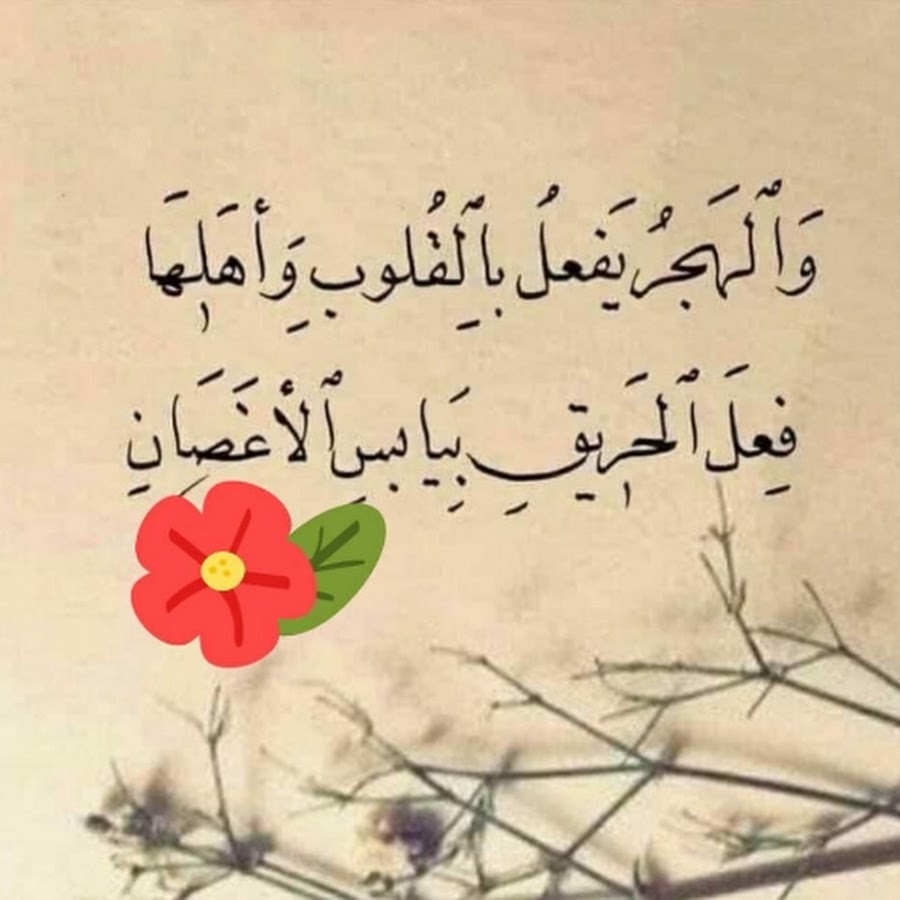 وَٱلْهَجرُ يَفعلُ بِٱلْقُلوبِ وَأهَلِها
فِعلَ ٱلْحَرِيقِ بِيَابسِ ٱلأغَصَانِ